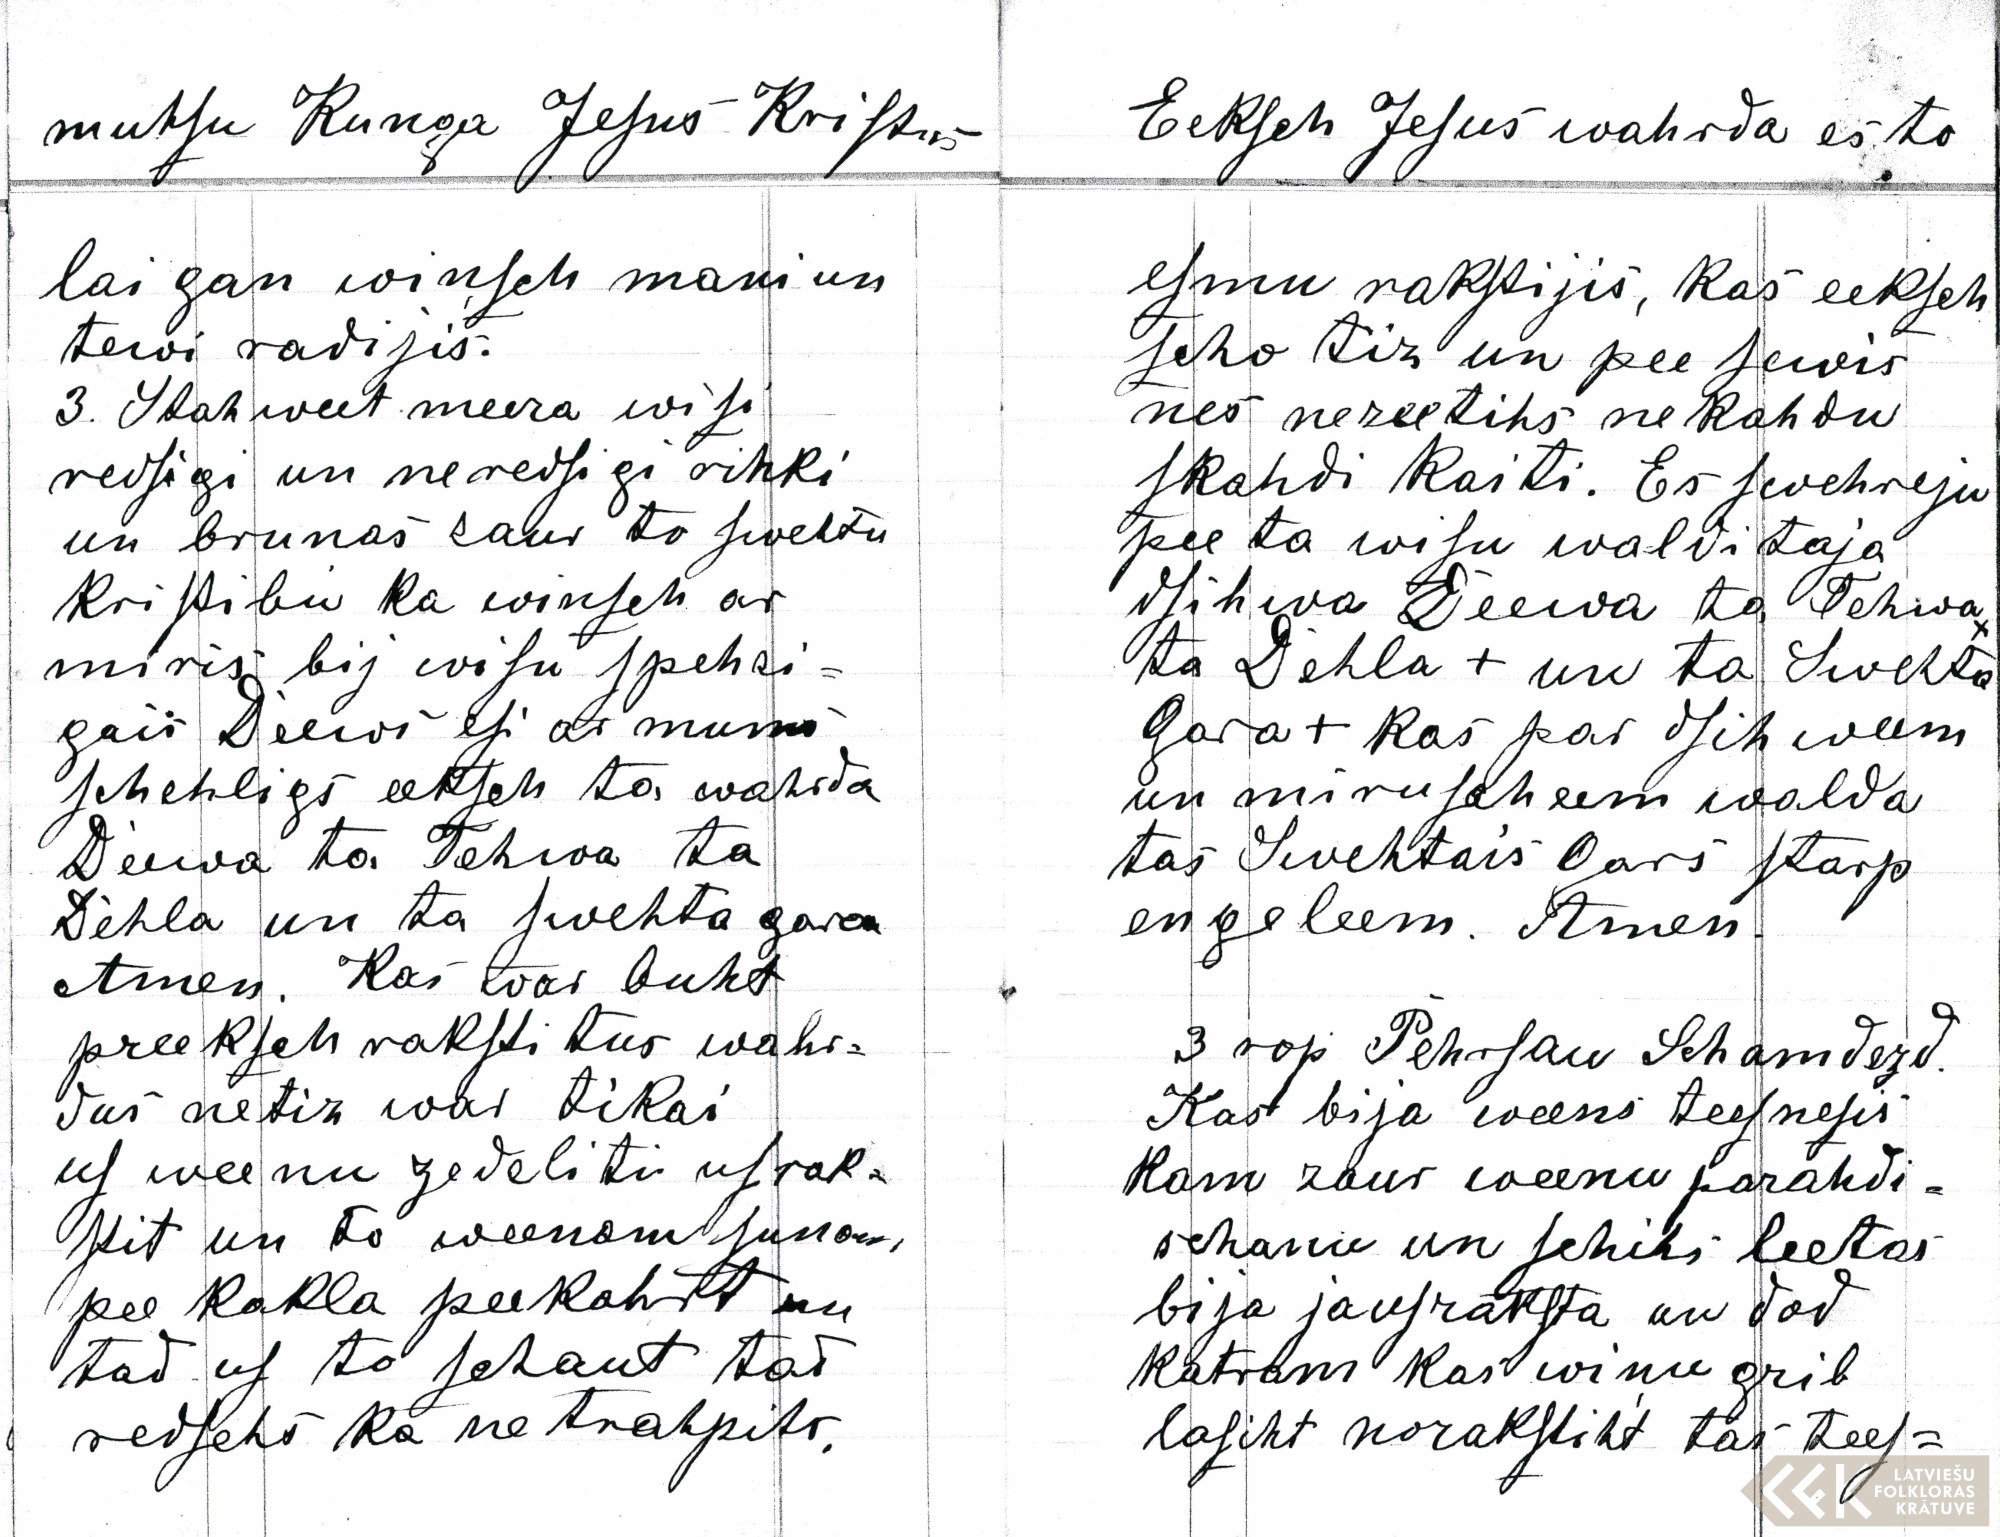 mutſu Kunga Jeſus Kriſtus
lai gan winſch mani un
tewi radijis.
3. Stahweet meera wiſi
redſigi un neredſigi rihki
un brunas zaur to ſwehtu
kriſtibu ka winſch ar
miris bij wiſu ſpehzi=
gais Deews eſi ar mums
ſchehligs eekſch ta wahrda
Deewa ta Tehwa ta
Dehla un ta ſwehta gara
Amen. Kas war buht
preekſch rakſtitus wahr=
dus netiz war tikai
uſ weenu zedeliti uſrak=
ſtit un to weenam ſunam
pee kakla peekahrt un
tad uſ to ſchaut tad
redſehs ka ne trahpihs.
Eekſch Jeſus wahrda es to
eſmu rakſtijis, kas eekſch
ſcho tiz un pee ſewis
nes nezeetihs nekahdu
ſkahdi kaiti. Es ſwehreju
pee ta wiſu walditaja
dſihwa Deewa ta Tehwa +
ta Dehla + un ta Swehta
Gara + kas par dſihweem
un miruscheem walda
tas Swehtais Gars ſtarp
engeleem. Amen.
3 rop Pehrſau Schamdezd.
Kas bija weens teeſneſis
kam zaur weenu parahdi=
schanu un ſchihs leetas
bija jauſrakſta un dod
katram kas winu grib
laſiht norakſtiht tas teeſ=
LATVIEŠU
FOLKLORAS
KRĀTUVE